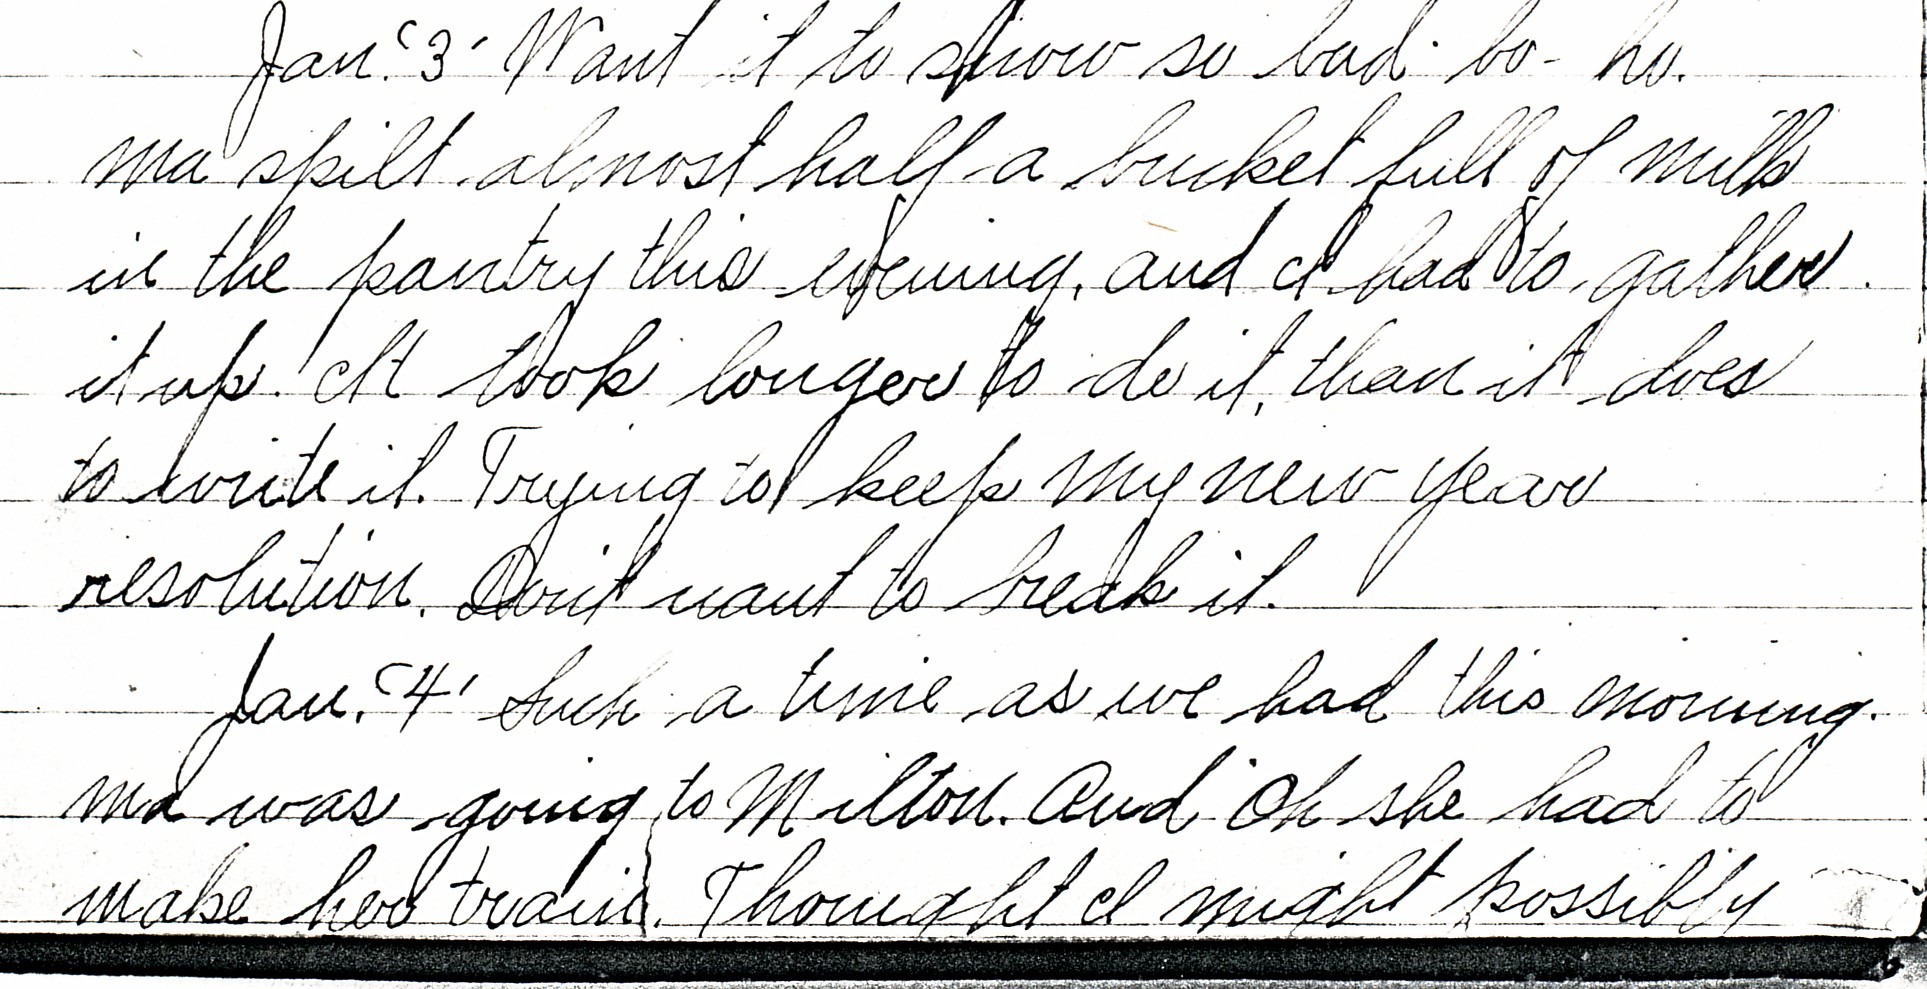 Jan. '3' Want it to snow so bad. bo- ho.
ma spilt almost half a bucket full of milk
in the pantry this evening, and I had to gather
it up. It took longer to do it, than it does
to write it. Trying to keep my new year
resolution. Don't want to break it.
Jan. '4' Such a time as we had this morning.
ma was going to Milton. And Oh she had to
make her train. Thought I might possibly